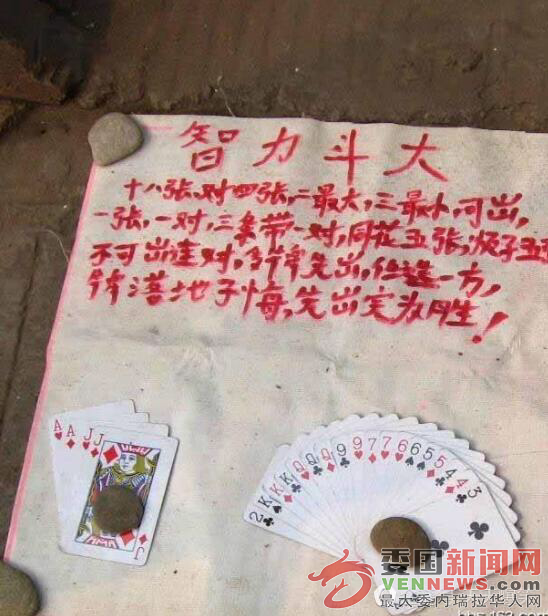 智力斗大
十八张,对四张,二最大,三最小,可出,
一张,一对,三条带一对,同花五张,板子五
不可出连对,多牌先出,任选一方,
牌落地不悔,先出完为胜!
A A J J
J
2 K K K Q Q Q 9 9 7 7 7 6 6 5 5 4 4 3
委国新闻网
VENNEWS.COM
最大委内瑞拉华人网